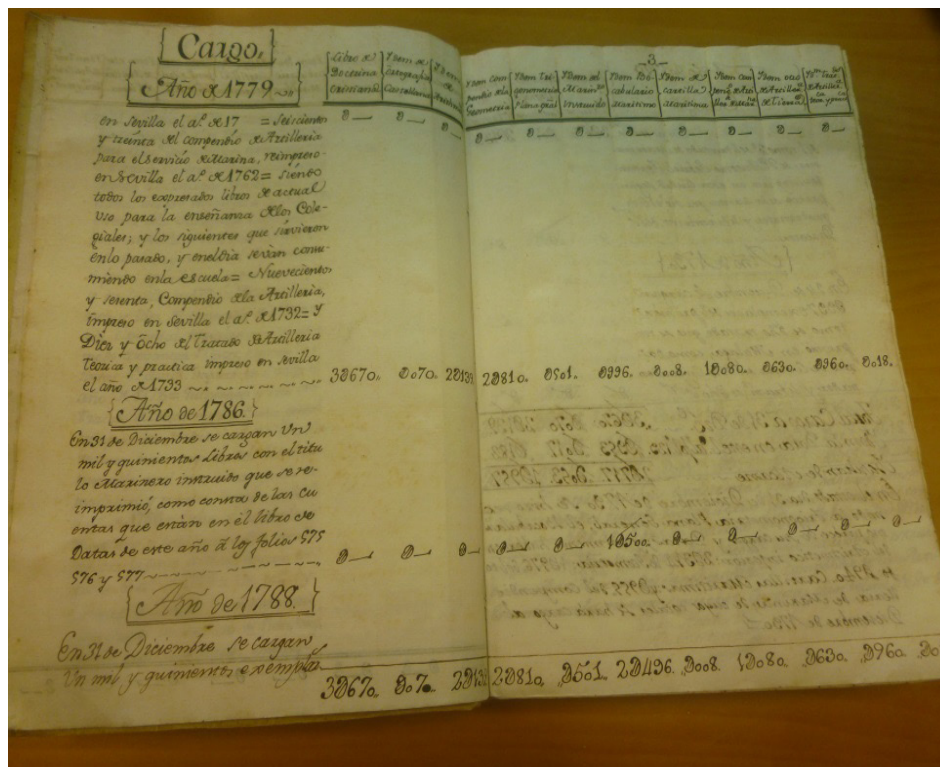 Cargo,
Año de 1779
Libro de Doctrina Cristiana
Idem de Ortografia Castellana
Idem
3
Idem com pendio de la Geometria
Idem Tri gonometria Plana
Idem del Marin° Instruido
Idem Vo cabulario Maritimo
Idem de Cartilla Maritima
Idem
Idem
en Sevilla el a.º de 17 = Seiscientos
y treinta del compendio de Artilleria
para el servicio de Marina, reimpreso
en Sevilla el a.º de 1762 = siendo
todos los expresados libros de actual
uso para la enseñanza de los Cole-
giales; y los siguientes que sirvieron
en lo pasado, y en el dia se ván consu-
miendo en la escuela = Nuevecientos
y sesenta, Compendio de la Artilleria,
impreso en Sevilla el a.º de 1732 = y
Diez y ocho del tratado de Artilleria
Teorica y practica impreso en Sevilla
el año de 1733
3D670. D070. 2D139 2D810. D501. D996. D008. 1D080. D630. D960. D018.
Año de 1786.
En 31 de Diciembre se cargan Un
mil y quinientos Libros con el titu
lo Marinero instruido que se re-
imprimió, como consta de las Cu
entas que están en el libro de
Datas de este año á los folios 575
576 y 577
D D D D D 1D500. D D D D D
Año de 1788.
En 31 de Diciembre se cargan
Un mil y quinientos exempla
3D670. D070. 2D139 2D810. D501. 2D496. D008. 1D080. D630. D960.